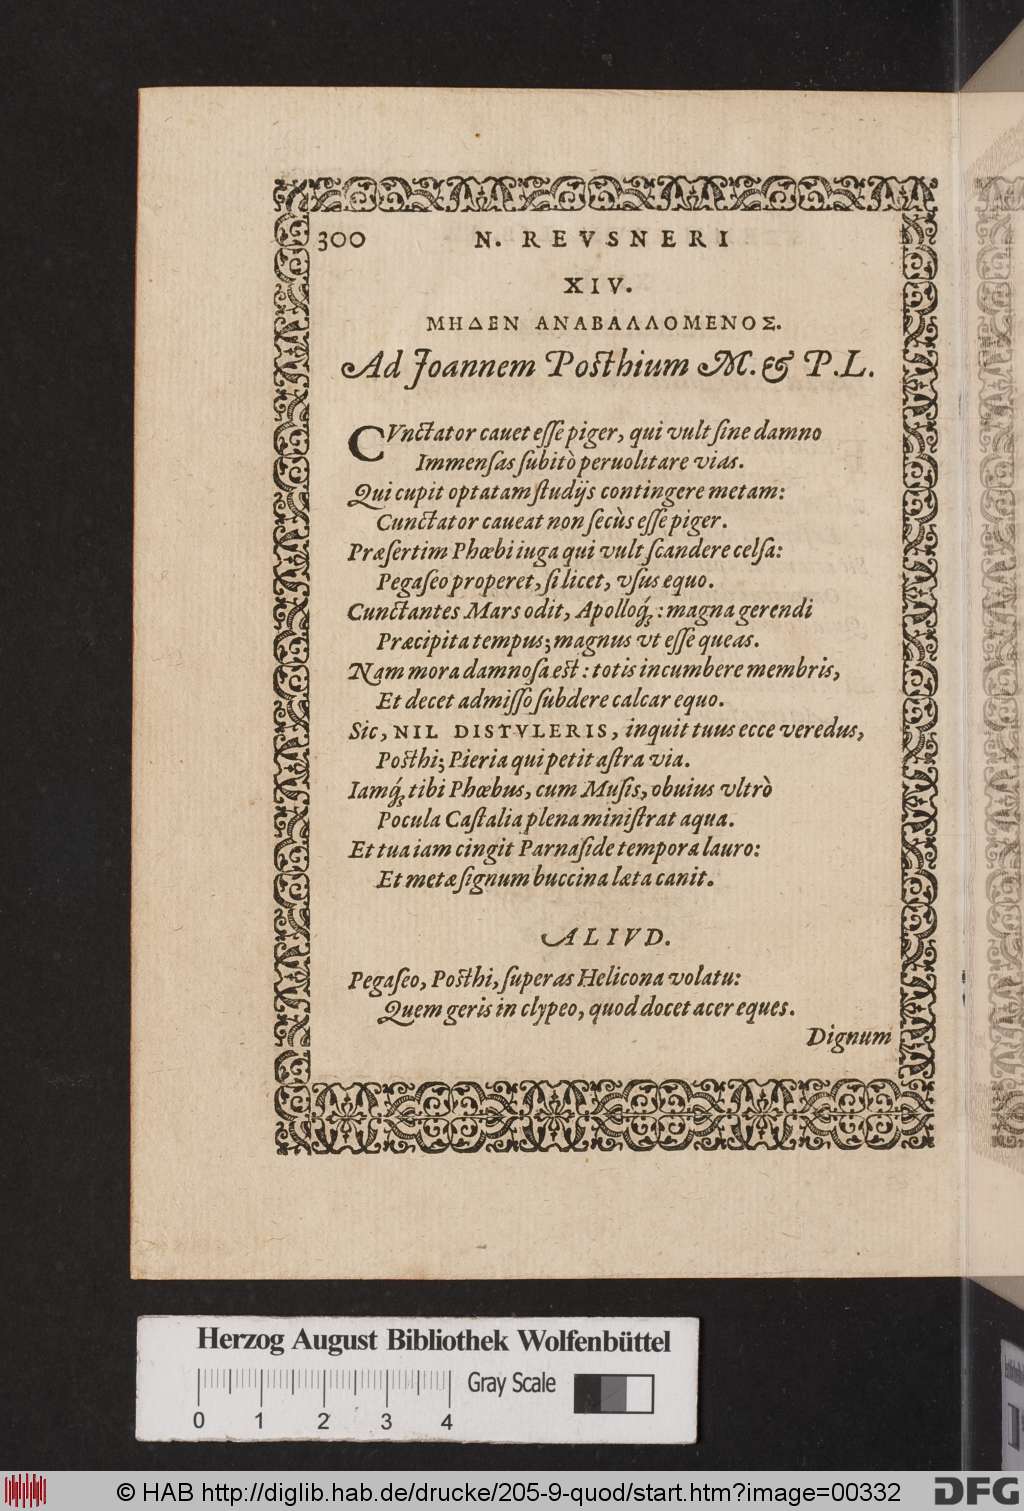 300 N. REVSNERI
XIV.
ΜΗΔΕΝ ΑΝΑΒΑΛΛΟΜΕΝΟΣ.
Ad Joannem Posthium M. & P. L.
CVnctator cauet eſſe piger, qui vult ſine damno
Immenſas ſubitò peruolitare vias.
Qui cupit optatam ſtudijs contingere metam:
Cunctator caueat non ſecùs eſſe piger.
Præſertim Phœbi iuga qui vult ſcandere celſa:
Pegaſeo properet, ſi licet, vſus equo.
Cunctantes Mars odit, Apolloq́;: magna gerendi
Præcipita tempus; magnus vt eſſe queas.
Nam mora damnoſa est: totis incumbere membris,
Et decet admiſſo ſubdere calcar equo.
Sic, NIL DISTVLERIS, inquit tuus ecce veredus,
Posthi; Pieria qui petit aſtra via.
Iamq́; tibi Phœbus, cum Muſis, obuius vltrò
Pocula Caſtalia plena miniſtrat aqua.
Et tua iam cingit Parnaſide tempora lauro:
Et metæ ſignum buccina læta canit.
ALIVD.
Pegaſeo, Posthi, ſuperas Helicona volatu:
Quem geris in clypeo, quod docet acer eques.
Dignum
Herzog August Bibliothek Wolfenbüttel
Gray Scale
0 1 2 3 4
© HAB http://diglib.hab.de/drucke/205-9-quod/start.htm?image=00332
DFG